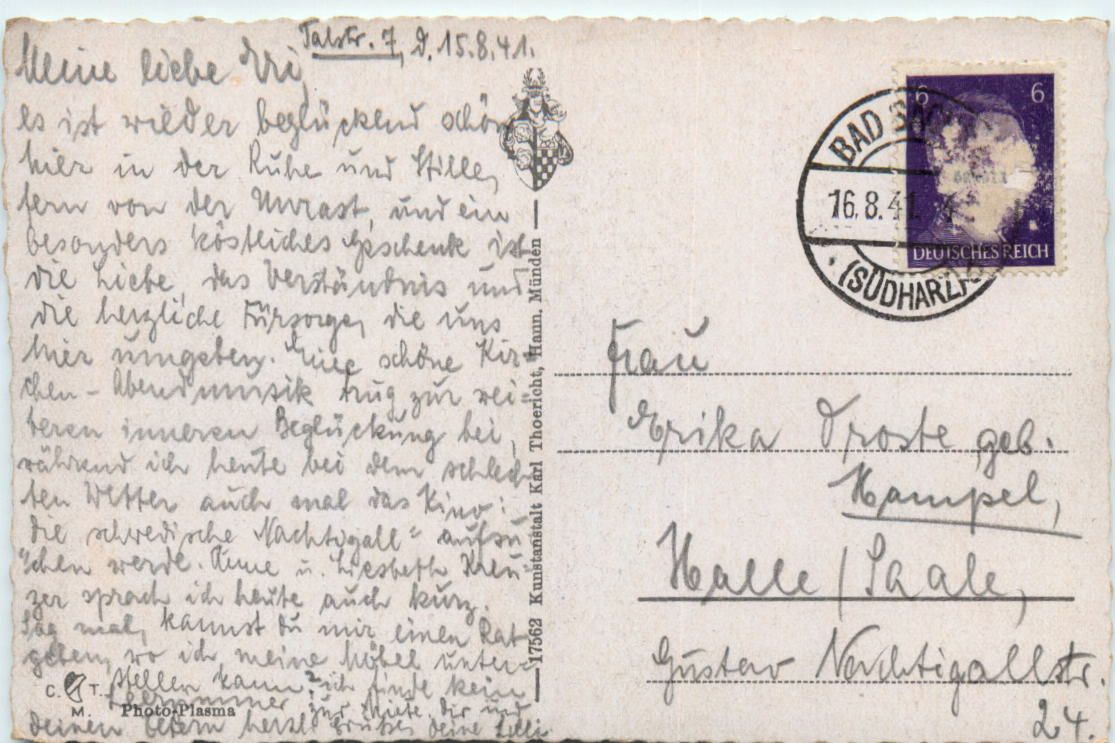 Talstr. 7, d. 15.8.41.
Meine liebe
es ist wieder beglückend schön
hier in der Ruhe und Stille,
fern von der Unrast, und ein
besonders köstliches Geschenk ist
die Liebe, das Verständnis und
die herzliche Fürsorge, die uns
hier umgeben. Eine schöne Kir-
chen-Abendmusik trug zur wei-
teren inneren Beglückung bei,
während ich heute bei dem schlech
ten Wetter auch mal das Kino:
die schwedische Nachtigall" aufsu
chen werde. u. Liesbeth Kreu-
zer sprach ich heute auch kurz.
Sag mal, kannst du mir einen Rat
geben, wo ich meine Möbel unter-
stellen kann? ich finde kein
zur Miete. dir und
deinen Eltern herzl. Grüße, deine Lilli
C. T.
M. Photo-Plasma
17562 Kunstanstalt Karl Thoericht, Hann. Münden
6 6
DEUTSCHES REICH
BAD
16.8.41
(SÜDHARZ)
Frau
Erika Droste geb.
Hampel,
Halle/Saale,
Gustav Nachtigallstr.
24.